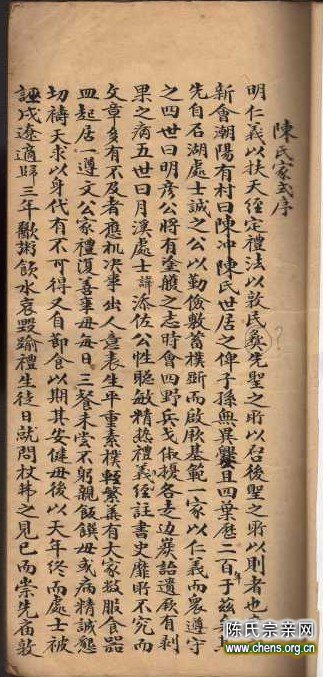 陳氏家序
明仁義以扶天經定禮法以敦民彝先聖之所以召後聖之所以則者也
新會潮陽有村曰陳冲陳氏世居之俾子孫無異爨且四葉歷二百年于兹
先自石湖處士誠之公以勤儉敷蓄樸斲而啟厥基範一家以仁義而衆遵守
之四世曰明彦公將有塗墍之志時會四野兵戈俶擾各差边詒遺厥有剥
果之病五世曰月溪處士諱添佐公性聪敏精热禮義經註書史靡所不究而
文章多有不及者應机决事出人意表生平重素樸輕繁華有大家数服食器
皿起居一遵文公家禮復善事毋每日三餐未嘗不躬親飯饌毋或病精誠懇
切禱天求以身代有不可得又自節食以期其安健毋後以天年終而處士被
誣戍遼適歸三年歠粥飲水哀毁踰禮生徒日就問杖之見已而崇先庙敦
陈氏宗亲网
www.chens.org.cn